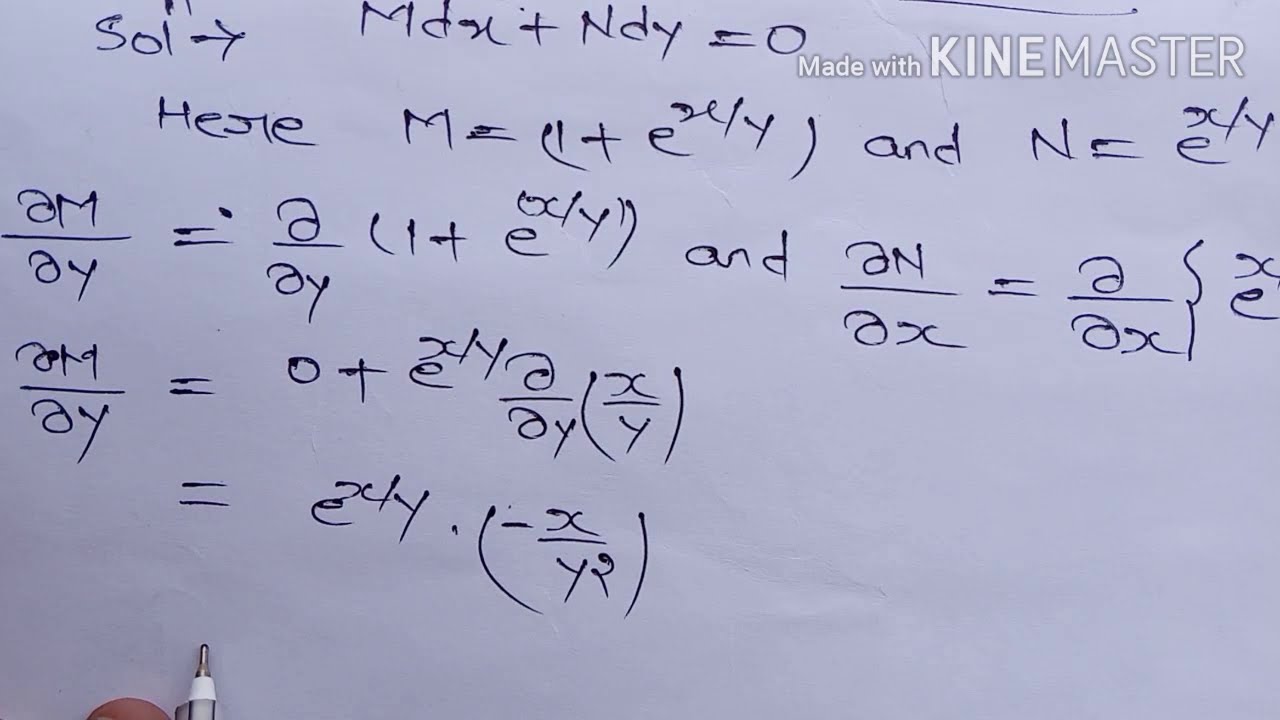 Solⁿ → Mdx + Ndy = 0
Made with KINEMASTER
Here M = (1 + e^{x/y}) and N = e^{x/y}
∂M/∂y = ∂/∂y (1 + e^{(x/y)}) and ∂N/∂x = ∂/∂x { e^{x
∂M/∂y = 0 + e^{x/y} ∂/∂y (x/y)
= e^{x/y} . (-x/y²)